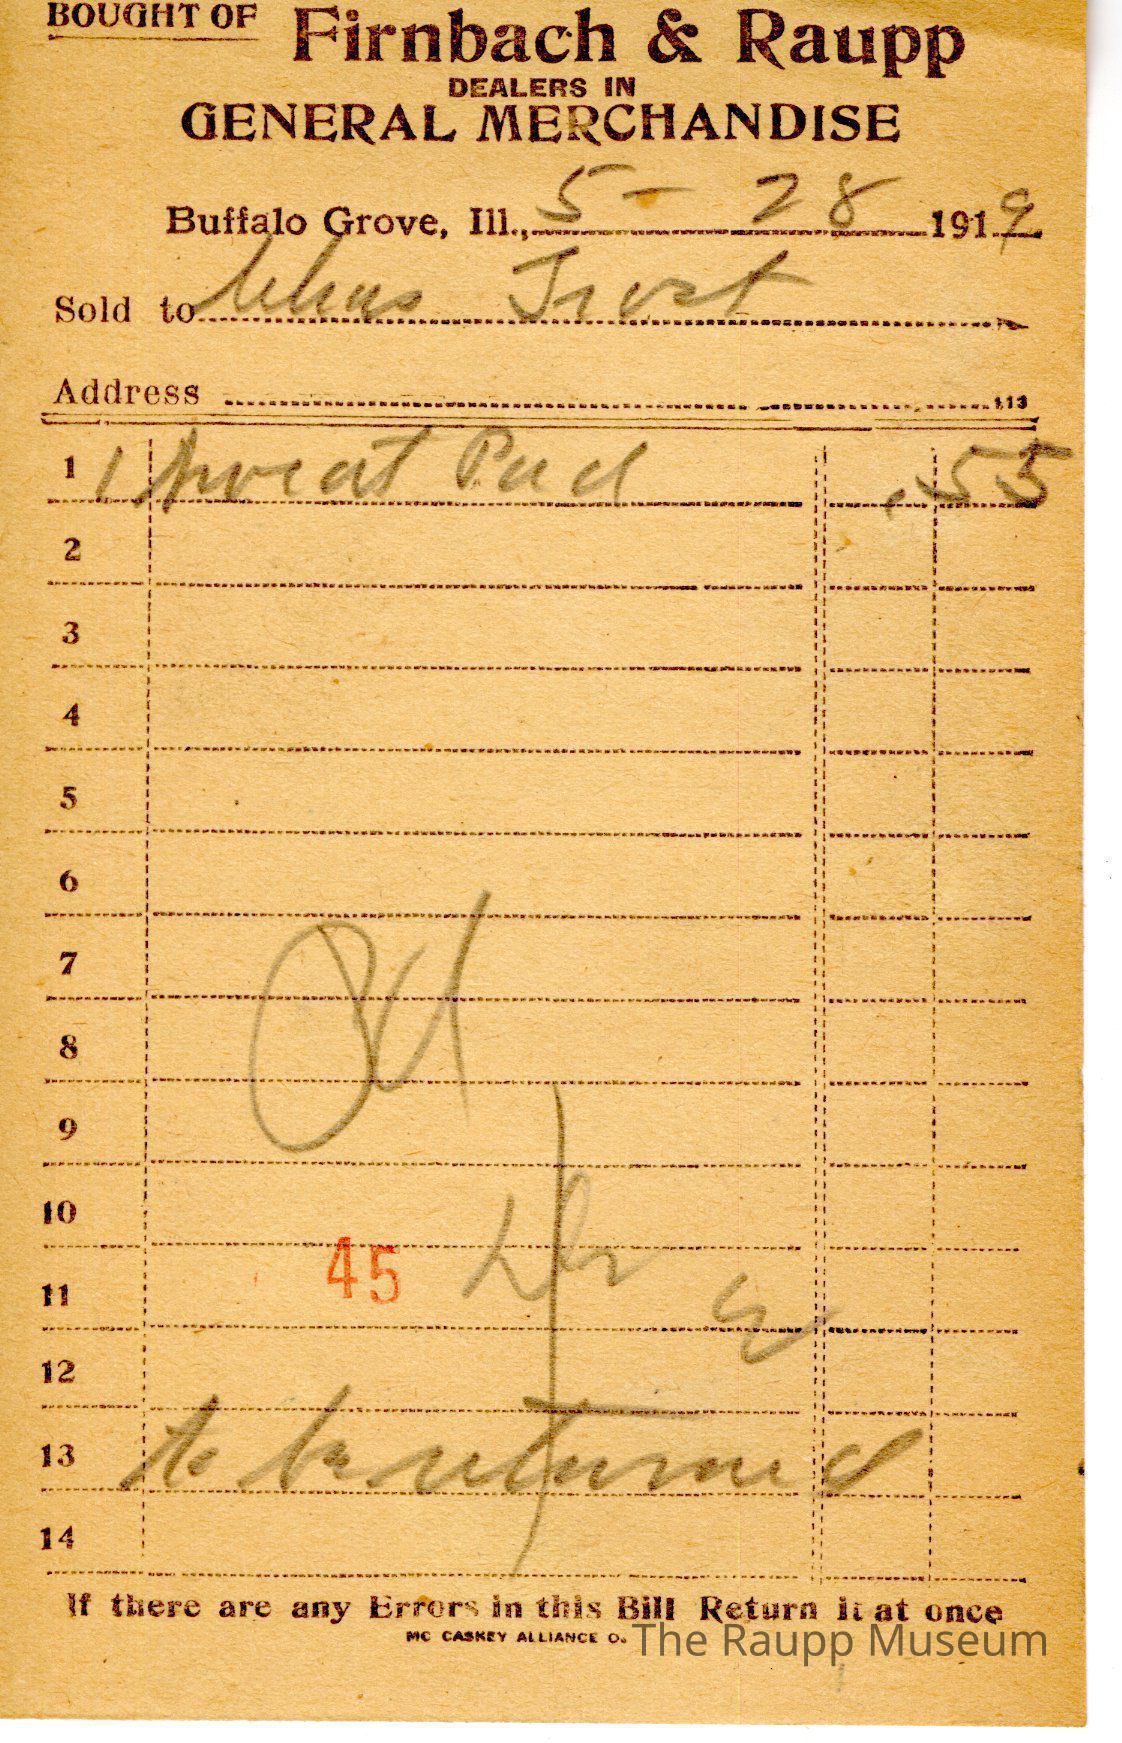 BOUGHT OF Firnbach & Raupp
DEALERS IN
GENERAL MERCHANDISE
Buffalo Grove, Ill., 5 - 28 1919
Sold to Chas Trost
Address
113
1 1 Sweat Pad .55
2
3
4
5
6
7
8
9
10
45
11
12
13 to be returned
14
If there are any Errors in this Bill Return it at once
MC CASKEY ALLIANCE O.
The Raupp Museum